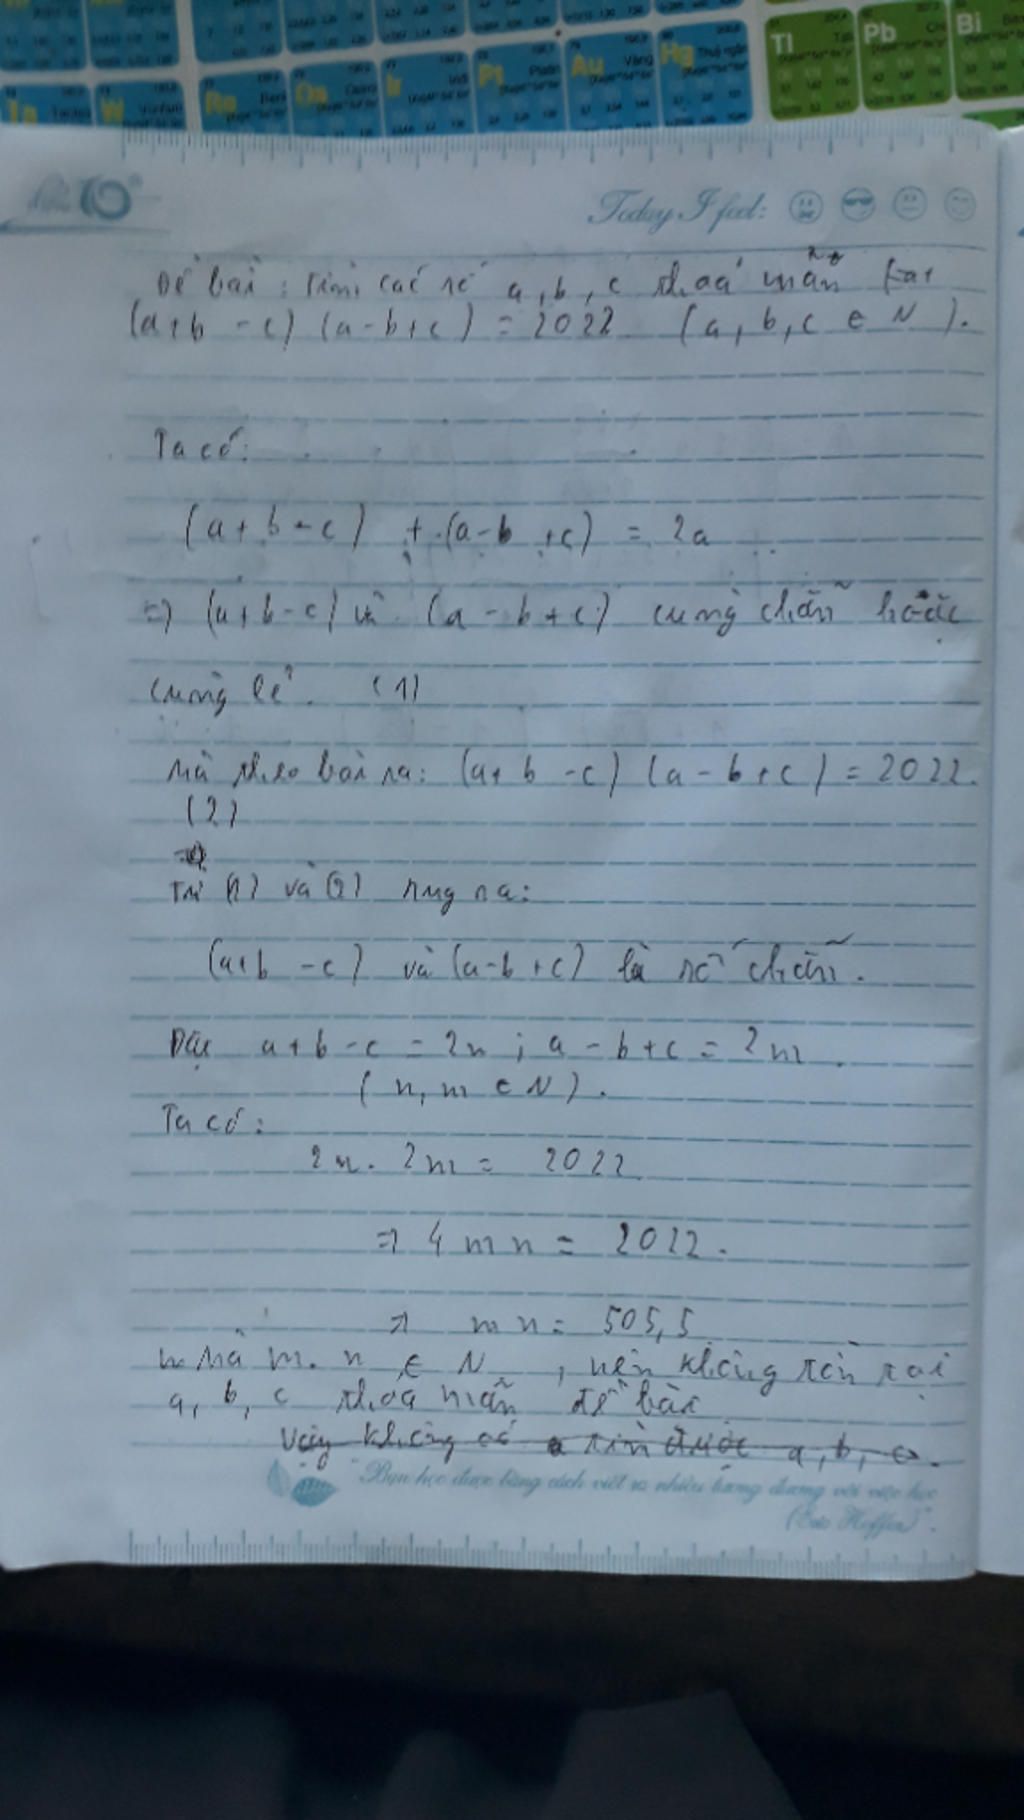 Tl
Pb
Bi
Ta
W
Re
Os
Ir
Pt
Au Vàng
Hg Thuỷ ngân
Today I feel:
Đề bài : Tìm các số a, b, c thoả mãn
(a+b-c) (a-b+c) = 2022 (a, b, c ∈ N).
Ta có:
(a+b-c) + (a-b+c) = 2a
=> (a+b-c) và (a-b+c) cùng chẵn hoặc
cùng lẻ. (1)
Mà theo bài ra: (a+b-c) (a-b+c) = 2022.
(2)
Từ (1) và (2) suy ra:
(a+b-c) và (a-b+c) là số chẵn.
Đặt a+b-c = 2n ; a-b+c = 2m.
(n, m ∈ N).
Ta có:
2n. 2m = 2022
=> 4mn = 2022.
=> mn = 505,5
Mà m. n ∈ N, nên không tồn tại
a, b, c thoả mãn đề bài
Vậy không có a tìm được a, b, c.
"Bạn học được bằng cách viết ra nhiều tương đương với việc học
(Eric Hoffer)".